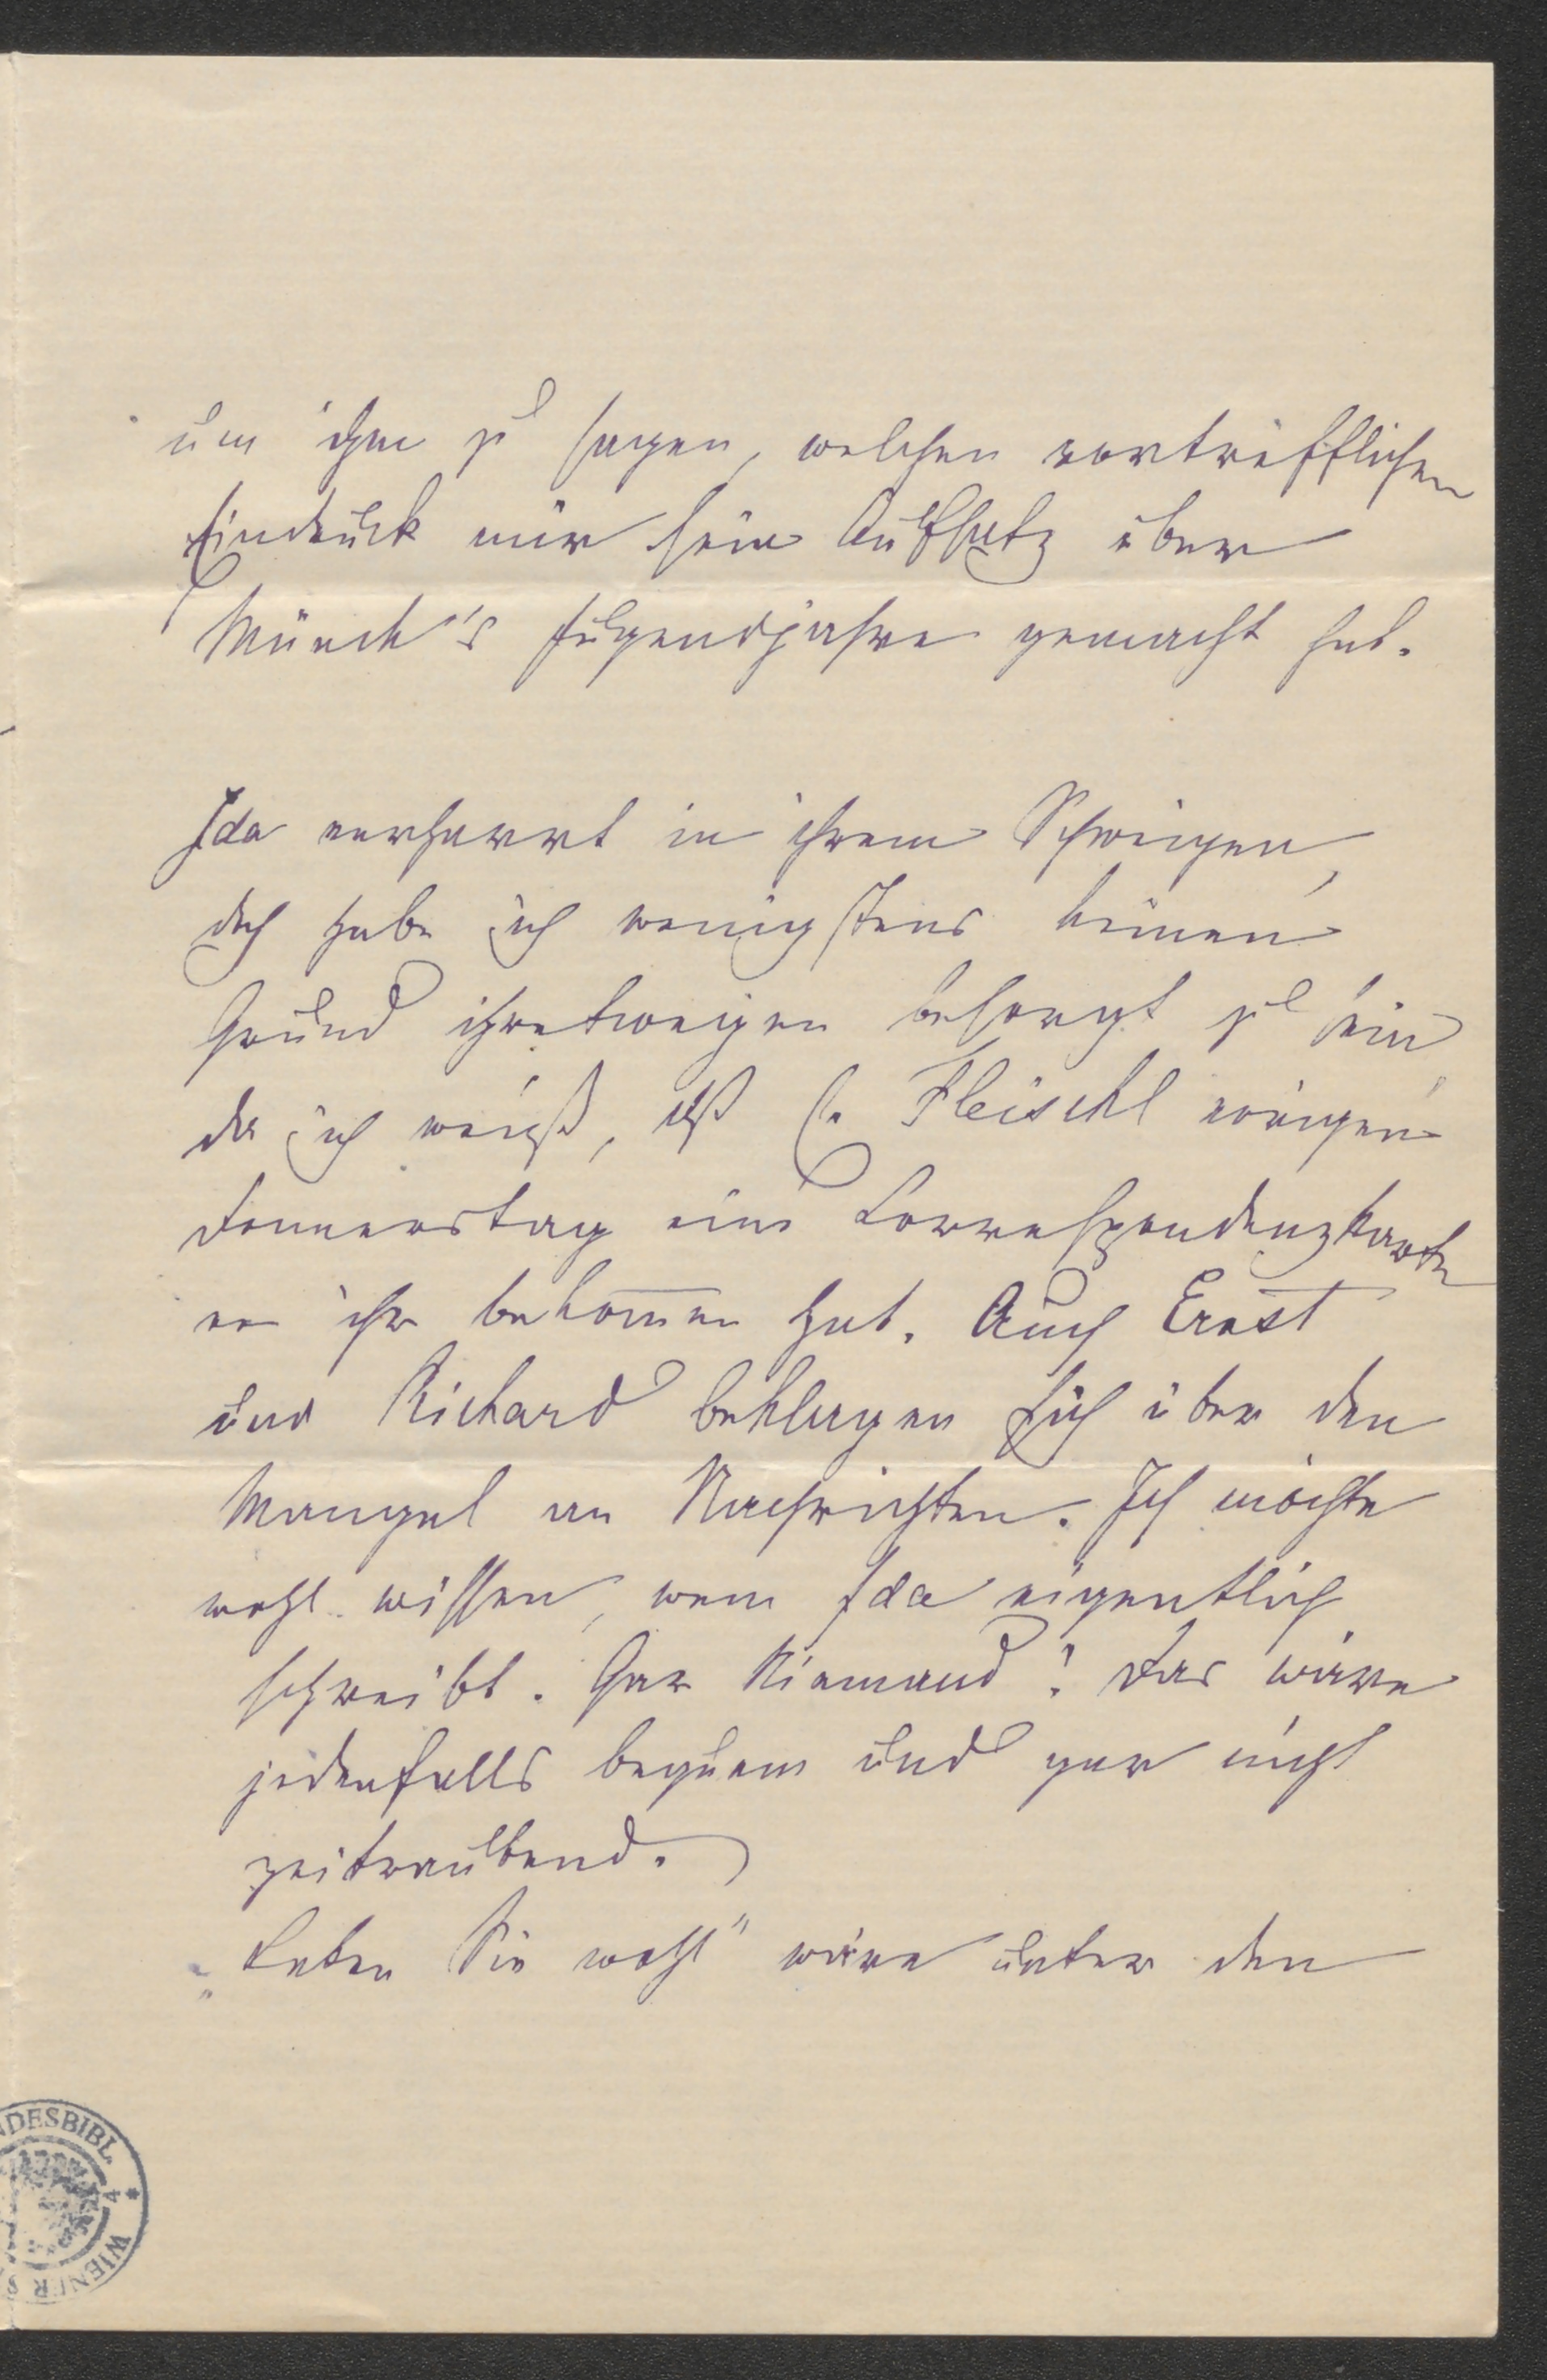 um ihm zu sagen, welchen vortrefflichen
Eindruck mir sein Aufsatz über
Münch's Jugendjahre gemacht hat.
Ida verharrt in ihrem Schweigen,
doch habe ich wenigstens keinen
Grund ihretwegen besorgt zu sein
da ich weiß, daß Fleischl vorigen
Donnerstag eine Correspondenzkarte
von ihr bekommen hat. Auch Ernst
und Richard beklagen sich über den
Mangel an Nachrichten. Ich möchte
wohl wissen, wem Ida eigentlich
schreibt. Gar Niemand? Das wäre
jedenfalls bequem und gar nicht
zeitraubend.
„Leben Sie wohl" wäre unter den
NDESBIBL. * WIENER S